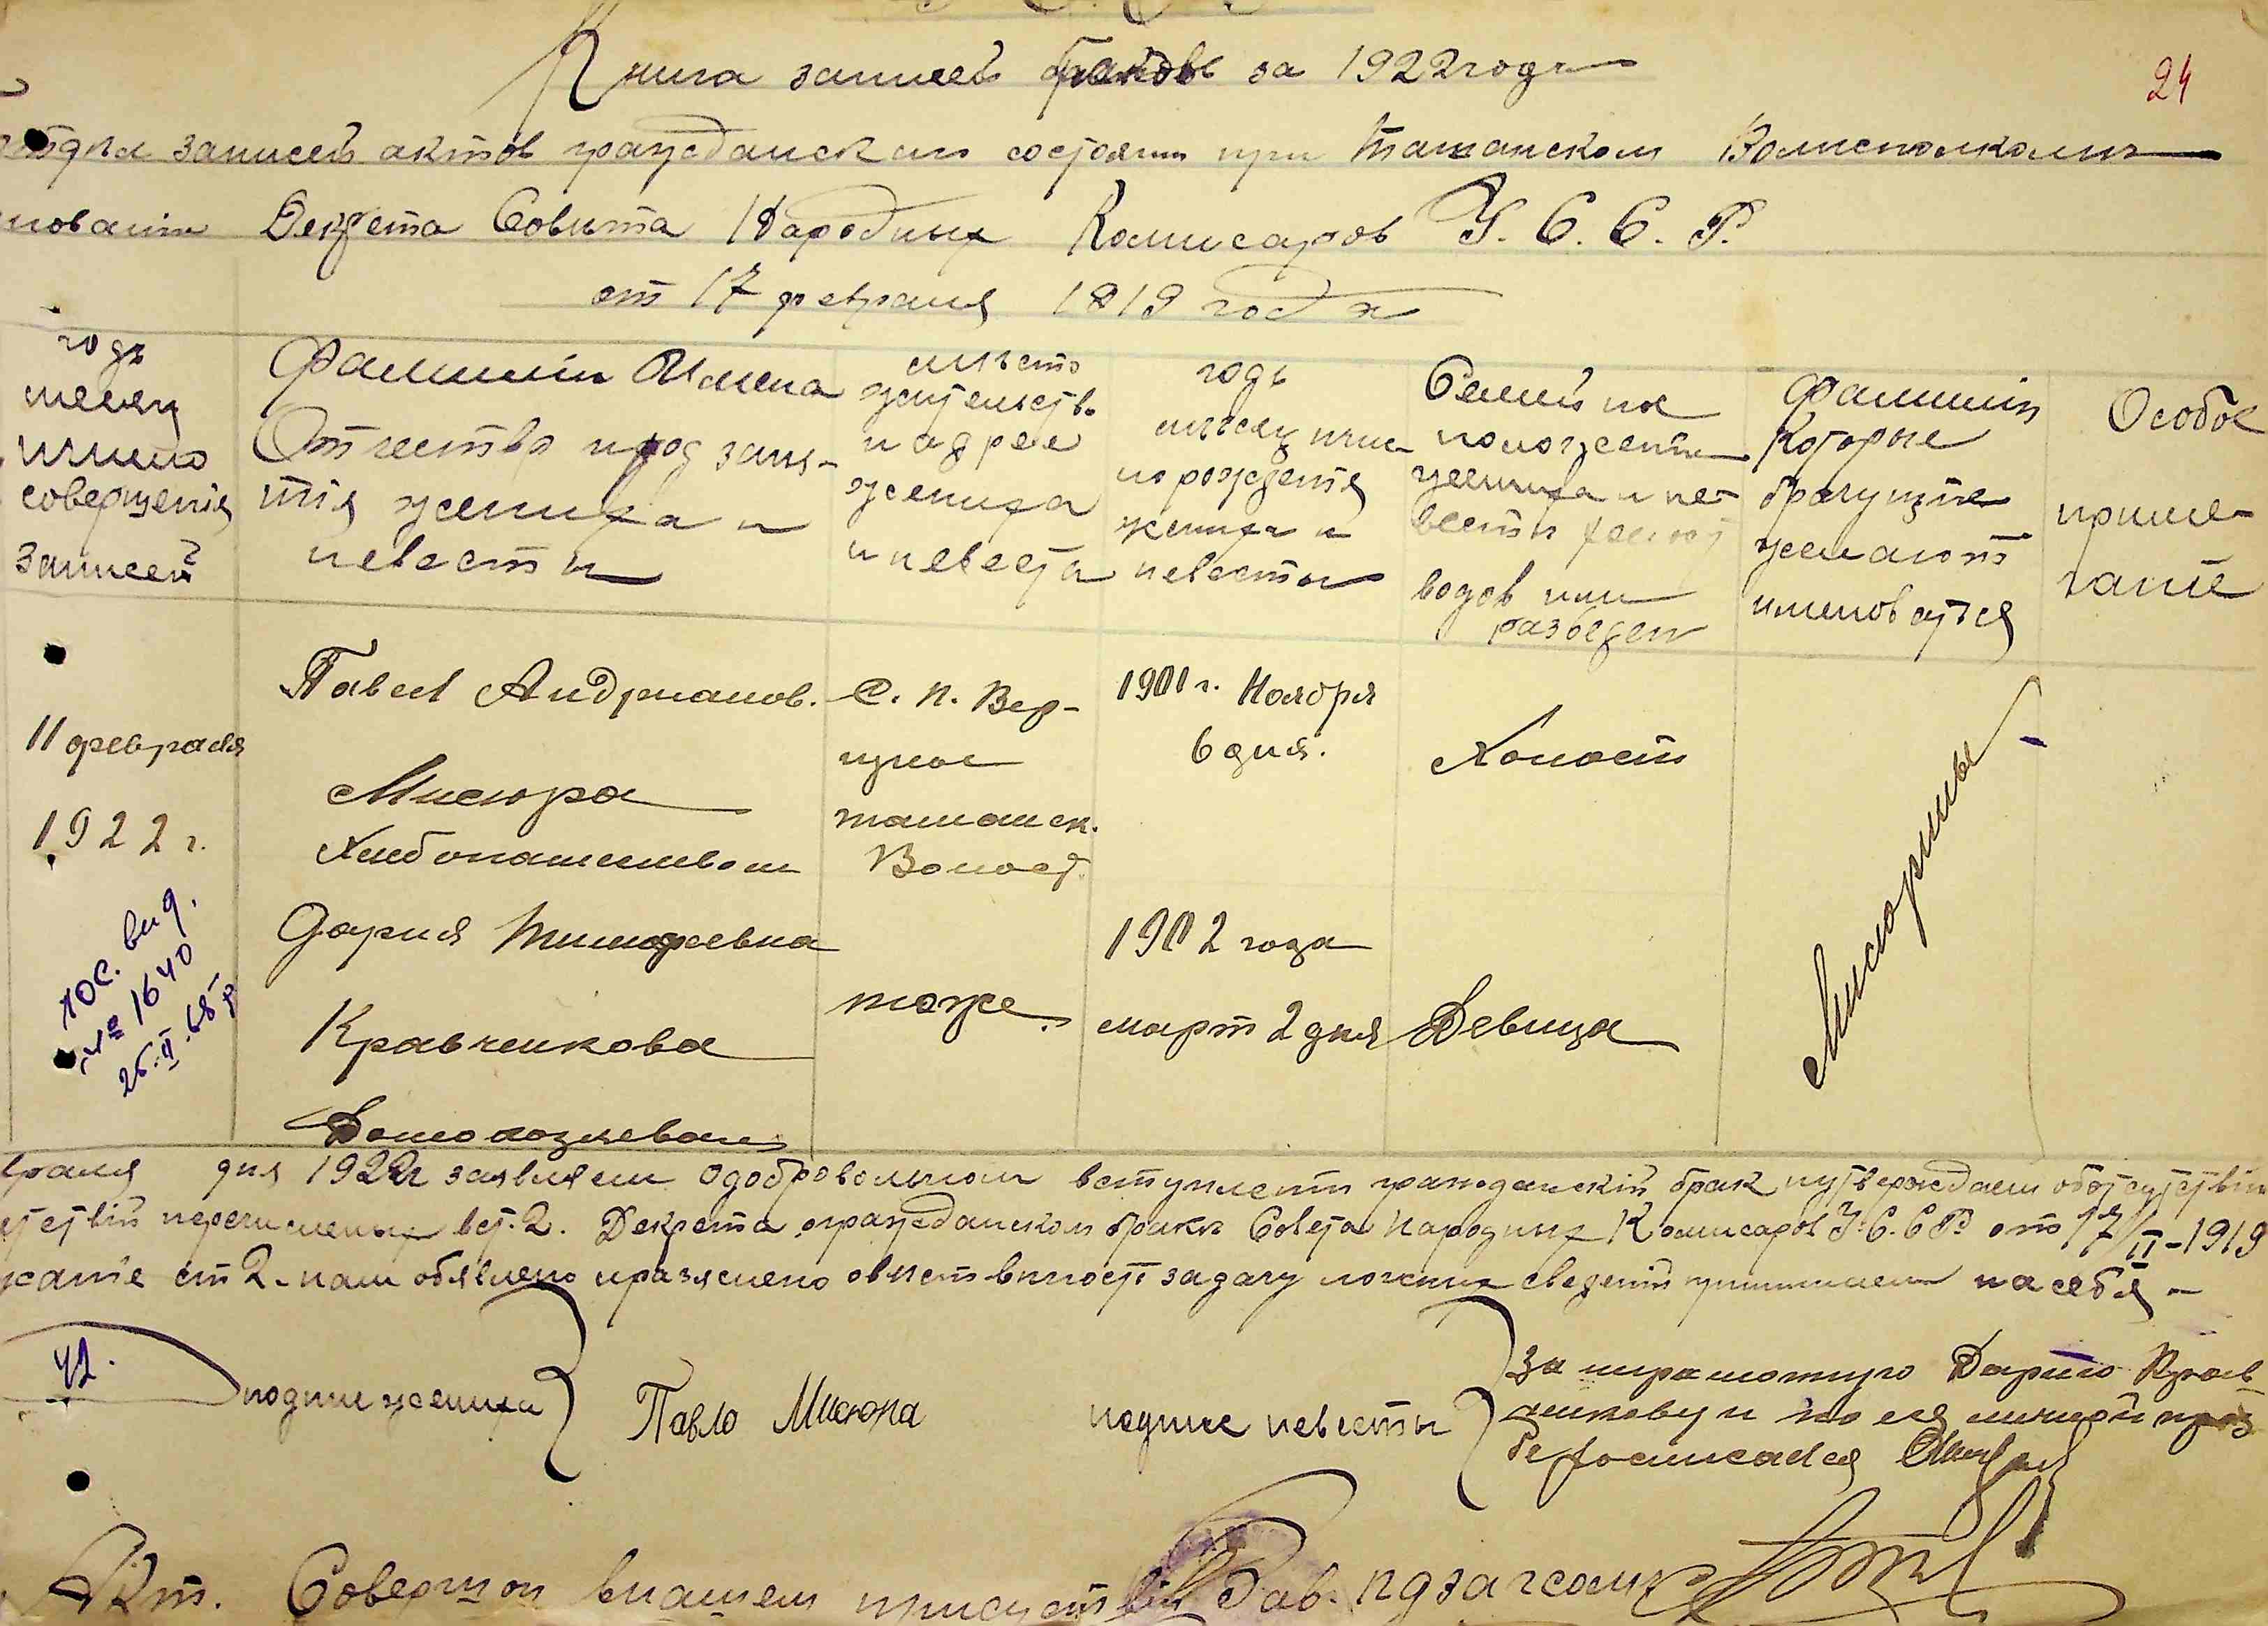 Книга записей браков за 1922 года
24
отдела записей актов гражданскаго состоянии при Таганском Волисполкоми
новании Декрета Совита Народных Комисаров У. С. С. Р.
от 17 февраля 1919 года
годъ
месец
и число
совершенія
записей
Фамиліи Имена
Отчество и род заня-
тія жениха и
невести
мъсто
жительств
и адрес
жениха
и невеста
годъ
мъсяц и чис-
ло рожденія
жениха и
невесты
Семейное
положеніе
жениха и не-
вести холост
водов или
разведен
Фамиліи
Которые
брачущіеся
желают
именоваться
Особое
приме-
чаніе
11 февраля
1922 г.
Павел Андрианов.
Мисюра
Хлебопашеством
С. Н. Вер-
хнее
Волост.
1901 г. Ноября
6 дня.
Холост
Мисюрины
Дария Тимофеевна
Кравченкова
Домохозяевам
тоже.
1902 года
март 2 дня
Девица
пос. вид.
№ 1640
25.II.68 р
враля дня 1922 г заявляем о добровольном вступлении гражданскій брак и утверждаем об отсутствіи
перечисленых в ст. 2. Декрета о гражданском браки Совета Народных Комисаров У. С. С Р. от 17/II-1919
жаніе ст 2. нам обявлено и разяснено овнетвиности за дачу ложних сведений принимаем на себя -
42.
подпис жениха
Павло Мисюра
подпис невесты
За ниграмотную Дарию Крав-
ченкову и по ея личной проз
бе росписался
Акт. Совершон внашем присуствіи Зав. пдзагсом